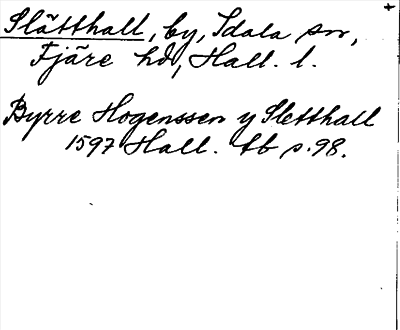 Slätthall, by, Idala sn,
Fjäre hd, Hall. l.
Byrre Hogenssen y Sletthall
1597 Hall. tb s. 98.